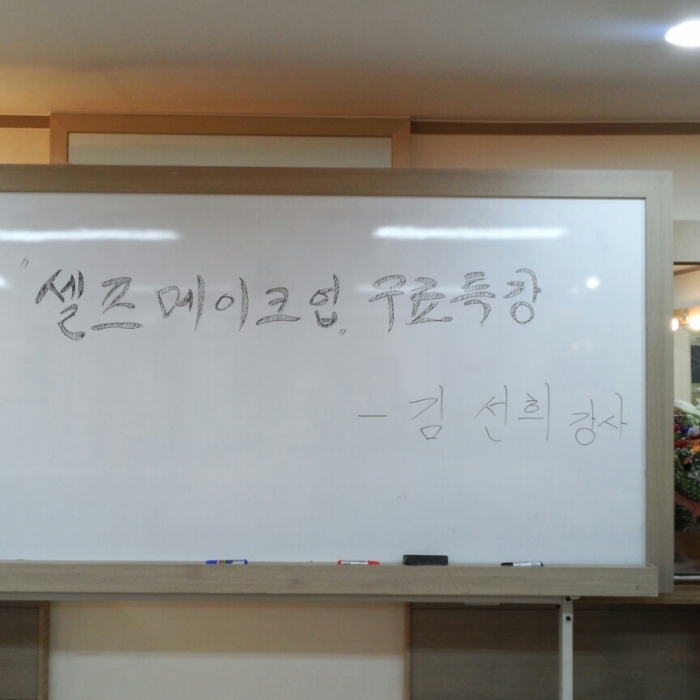 "셀프 메이크업" 무료특강
- 김 선희 강사